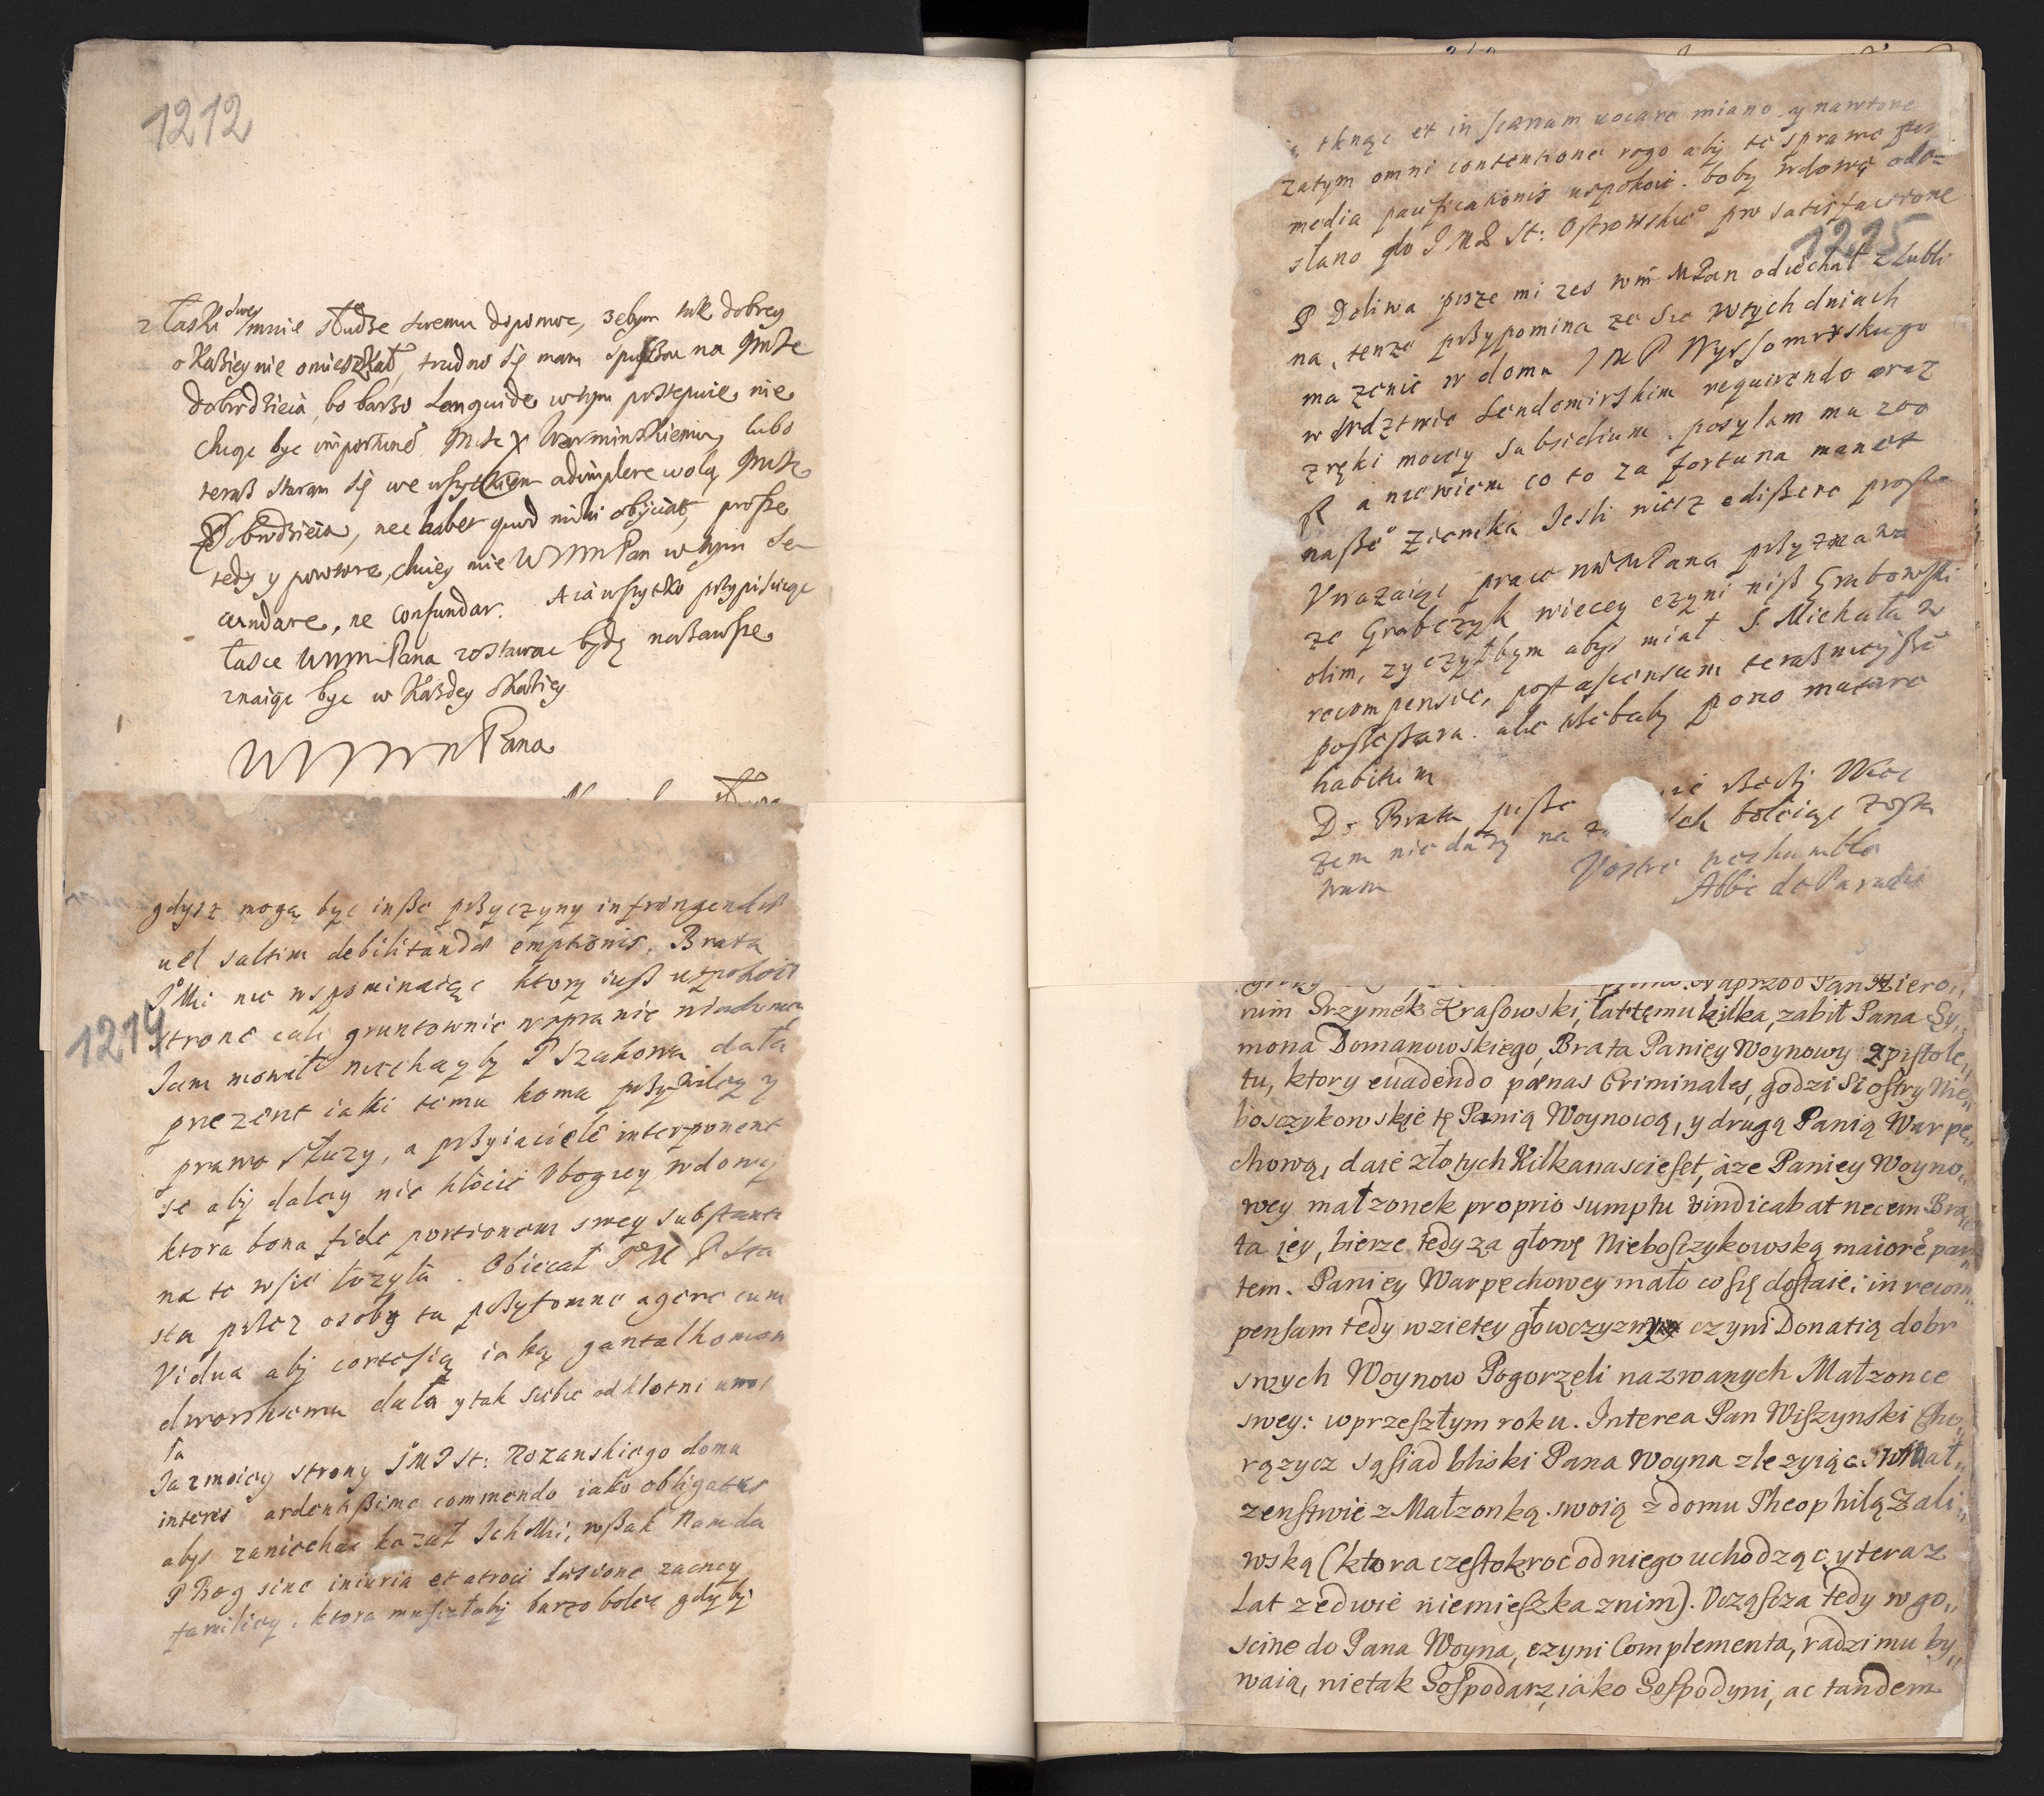 1212
z łaski swey mnie słudze swemu dopomoc, zebym tak dobrey
okaziey nie omieszkał, trudno się mam spuszcza na JMSc
dobrodzieia, bo barzo Languide w tym postępuie, nie
chcąc byc importuno JMSc X Warminskiemu, lubo
teraß staram się we wszytkiem adimplere wolą JMSc
Dobrodzieia, nec habet quod mihi obijciat, proszę
tedy y powtore, chciey mie WMMPan w tym se-
cundare, ne confundar. A ia wszytko przypisuiąc
łasce WMMPana zostawac będę nazawsze
znaiąc byc w każdey okaziey
WMMPana
1214
gdysz mogą byc insze przyczyny infringendæ
uel saltim debilitandæ emptionis. Brata
JMci nie wspominaiąc ktory iusz uspokoił
stronę cale gruntownie w sprawie
Jam mowił niechayby P Szakowa dała
prezent iaki temu komu przywiley y
prawo służy, a przyiaciele interponent
se aby daley nie kłocic Vbogiey wdowy
ktora bona fide portionem swey substanti
na te wsie łozyła. Obiecał JM P Sta
sta przez osoby tu przytomne agere cum
Vidua aby cortesią iaką gantalhomom
dworskiemu dała y tak siebie od kłotni uwol
ła
Ja z moiey strony JMP St: Rozanskiego domu
interes ardentissime commendo iako obligatus
abys zaniechac kazał Ich Mci, wszak nam da
P Bog sine iniuria et atroci læsione zacney
familiey, ktora musiałaby barzo bolec gdyby
tknąc et in scænam uocare miano y nawtone
zatym omni contentione rogo aby tę sprawę per
media pacificationis uspokoic. boby wdowę ode=
słano do JMP St: Ostrowskie° pro satisfactione
1215
P Doliwa pisze mi zes wm MPan odiechał z Lubli
na, tenze przypomina ze się w tych dniach
ma zenic w domu JMP Wyssomirskiego
w wdztwie Sendomirskim requirendo oraz
z ręki moiey subsidium. posyłam mu 200
R a niewiem co to za fortuna manet
nasze° Ziemka Jesli wiesz edissere proszę
Vwazaiąc prace WmMPana przyznawa
ze Grabczyk wiecey czyni nisz Grabowski
olim, zyczyłbym abys miał S. Michała w
recompensie, post ascensum teraß nieyszé
possessora. ale trzebaby pono mutare
habitum
Do Brata pisze
zem nie dazy na boleiąc Zosta
wam
Vostre
Abbé de Paradis
Naprzod Pan Hiero„
nim Srzymek Krasowski, lat temu kilka, zabił Pana Sy„
mona Domanowskiego, Brata Paniey Woynowy z pistole„
tu, ktory euadendo pænas Criminales, godzi Siostry Nie„
bosczykowskie tę Panią Woynową, y drugą Panią Warpę„
chową, daie złotych Kilkanascieset, àze Paniey Woyno„
wey małzonek proprio sumptu vindicabat necem Bra„
ta iey, bierze tedy zą głowę Nieboszczykowską maiorē par„
tem. Paniey Warpechowey mało co się dostaie; in recom„
pensam tedy wzietey głowczyzny czyni Donatią dobr
swych Woynow Pogorzeli nazwanych Małzonce
swey: w przeszłym roku. Interea Pan Wiszynski Cho„
rązycz sąsiad bliski Pana Woyna zle zyiąc w Mał„
zenstwie z Małzonką swoią z domu Theophilą Zali„
wską (ktora czestokroc od niego uchodząc, y teraz
Lat zedwie niemieszka znim). Vcząscza tedy w go„
scine do Pana Woyna, czyni Complementa, radzi mu by„
waią, nie tak Gospodarz, iako Gospodyni, ac tandem